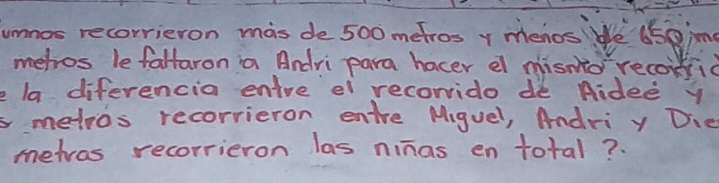 umnos recorrieron más de 500 metros y menos de 650 me
metros le faltaron a Andri para hacer el mismo recorrid
e la diferencia entre el recorrido de Aideé y
s metros recorrieron entre Miguel, Andri y Die
metras recorrieron las niñas en total?.